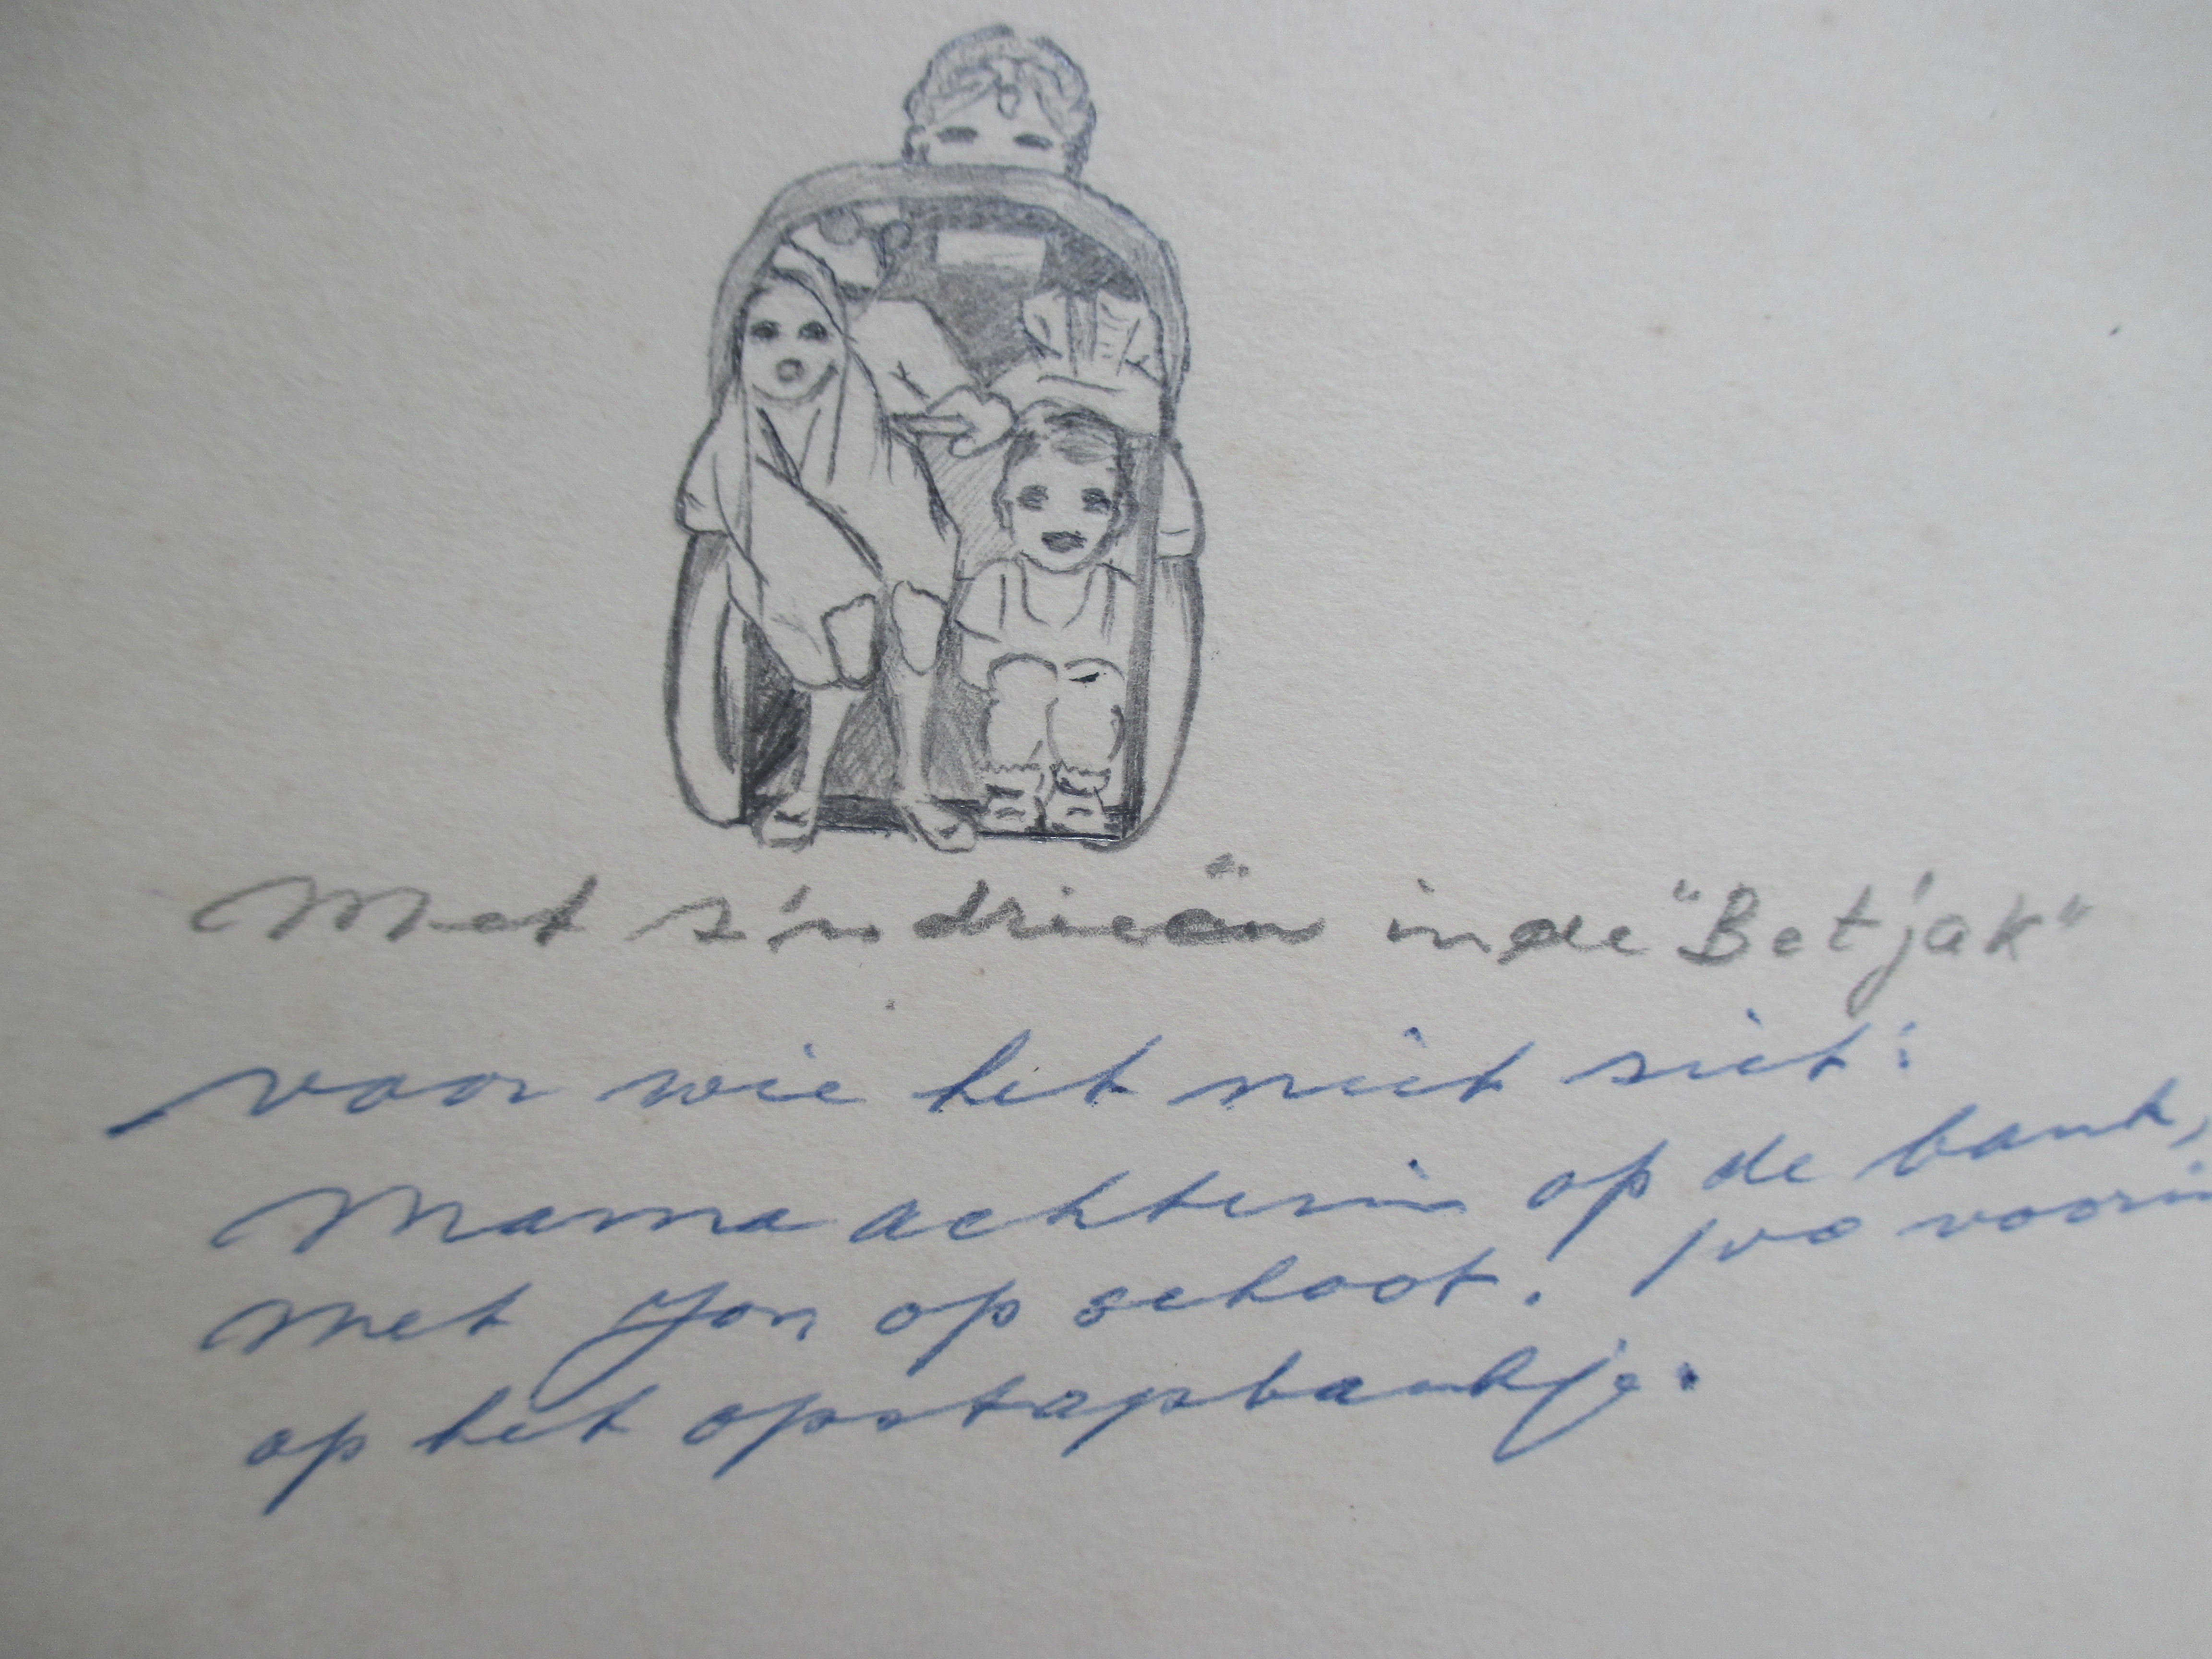 Met s'n drieën in de "Betjak"
voor wie het niet siet:
Mama achterin op de bank,
met Jon op schoot. Ivo voorin
op het opstapbankje.